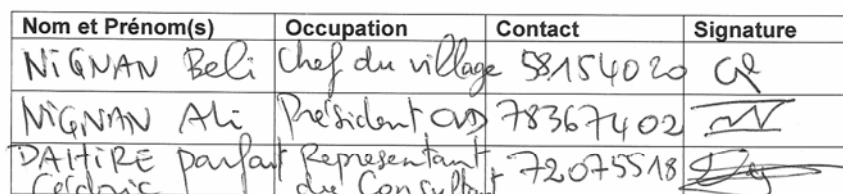 Nom et Prénom(s) Occupation Contact Signature
NIGNAN Beli Chef du village 58154020
NIGNAN Ali Président CVD 78367402
DAHIRE Parfait Representant 72075518
Cédric du Consultant